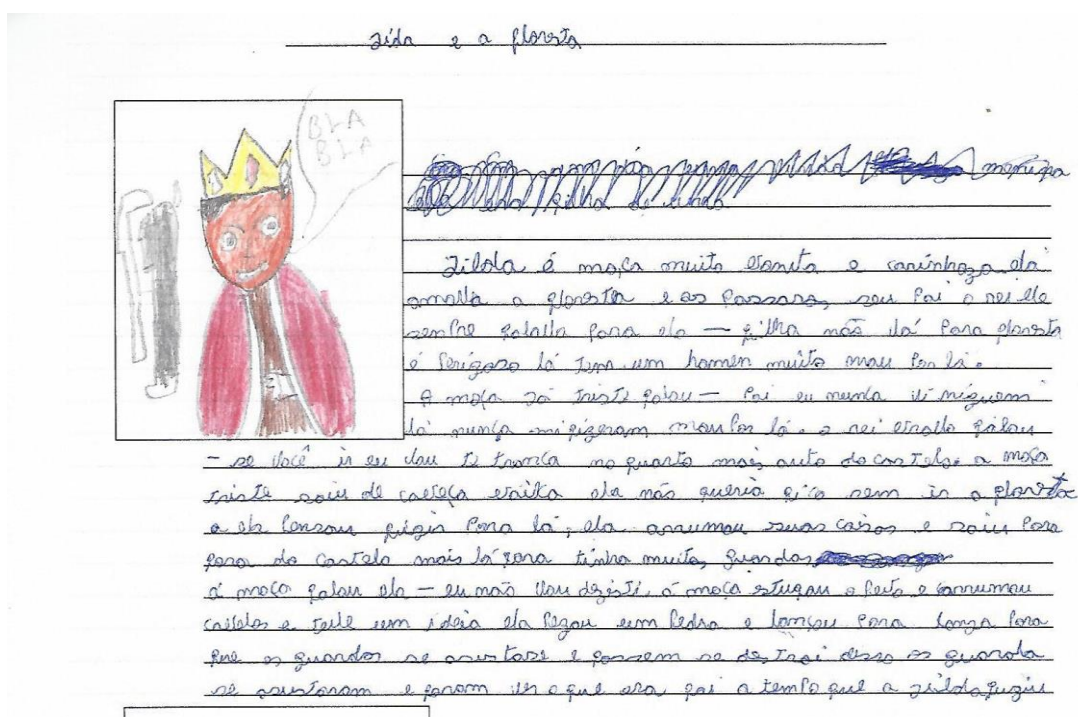 e a floresta
BLA
BLA
Jilda é moça muito bonita e carinhoza ela
amava a floresta e as Passaros, seu Pai o rei ele
senPre falava Para ela — filha não vá Para floresta
é Perigozo lá tem um homen muito mau Por lá.
A moça Já triste falou — Pai eu nunca vi niguem
lá nunca mi fizeram mau Por lá. o rei bravo falou
— se você ir eu vou ti tranca no quarto mais auto do castelo. a moça
triste saiu de cabeça baixa ela não queria fica sem ir a floresta
a ela Pensou fugir Para lá, ela arrumou suas coisas e saiu Para
fora do castelo mais lá fora tinha muitos guardas
á moça falou ela — eu não vou dezisti, á moça estufou o Peito e arrumou
cabelos e teve um ideia ela Pegou um Pedra e lançou Para longe Para
que os guardas se asustase e fossem se destrai disso os guarda
se asustaram e foram ver o que era foi a tempo que a Jilda fugiu